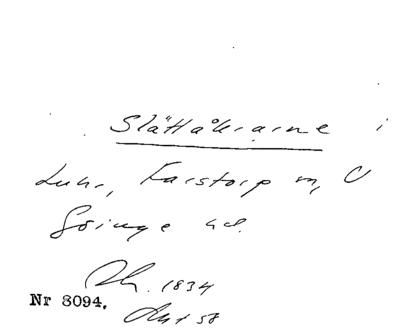 Slättåkrarne i
Luhr, Farstorp m, V
Göinge hd.
1834
Nr 8094.
Akt 58